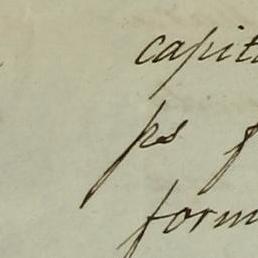 capit
ps f
form